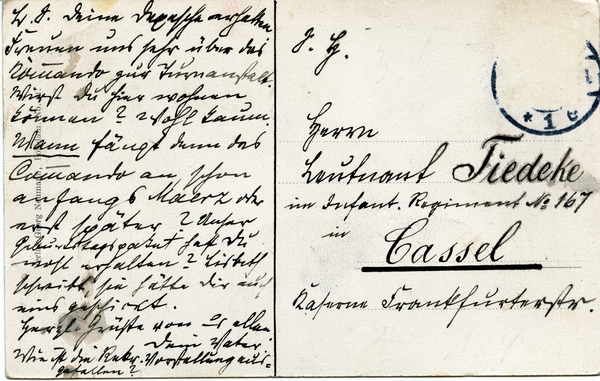 L. S. Deine Depesche erhalten
Freuen uns sehr über das
Kommando zur Turnanstalt.
Wirst Du hier wohnen
können? Wohl kaum.
Wann fängt denn das
Comando an schon
anfangs Maerz oder
erst später? Unser
Geburtstagspaket hast Du
wohl erhalten? Lisbeth
schreibt sie hätte Dir auch
eins geschickt.
Herzl. Grüße von us allen
Dein Vater.
Wie ist die Rekr. Vorstellung aus-
gefallen?
S. H.
Herrn
Leutnant Tiedeke
im Infant. Regiment No 167
in
Cassel
Kaserne Frankfurterstr.
* 1 c